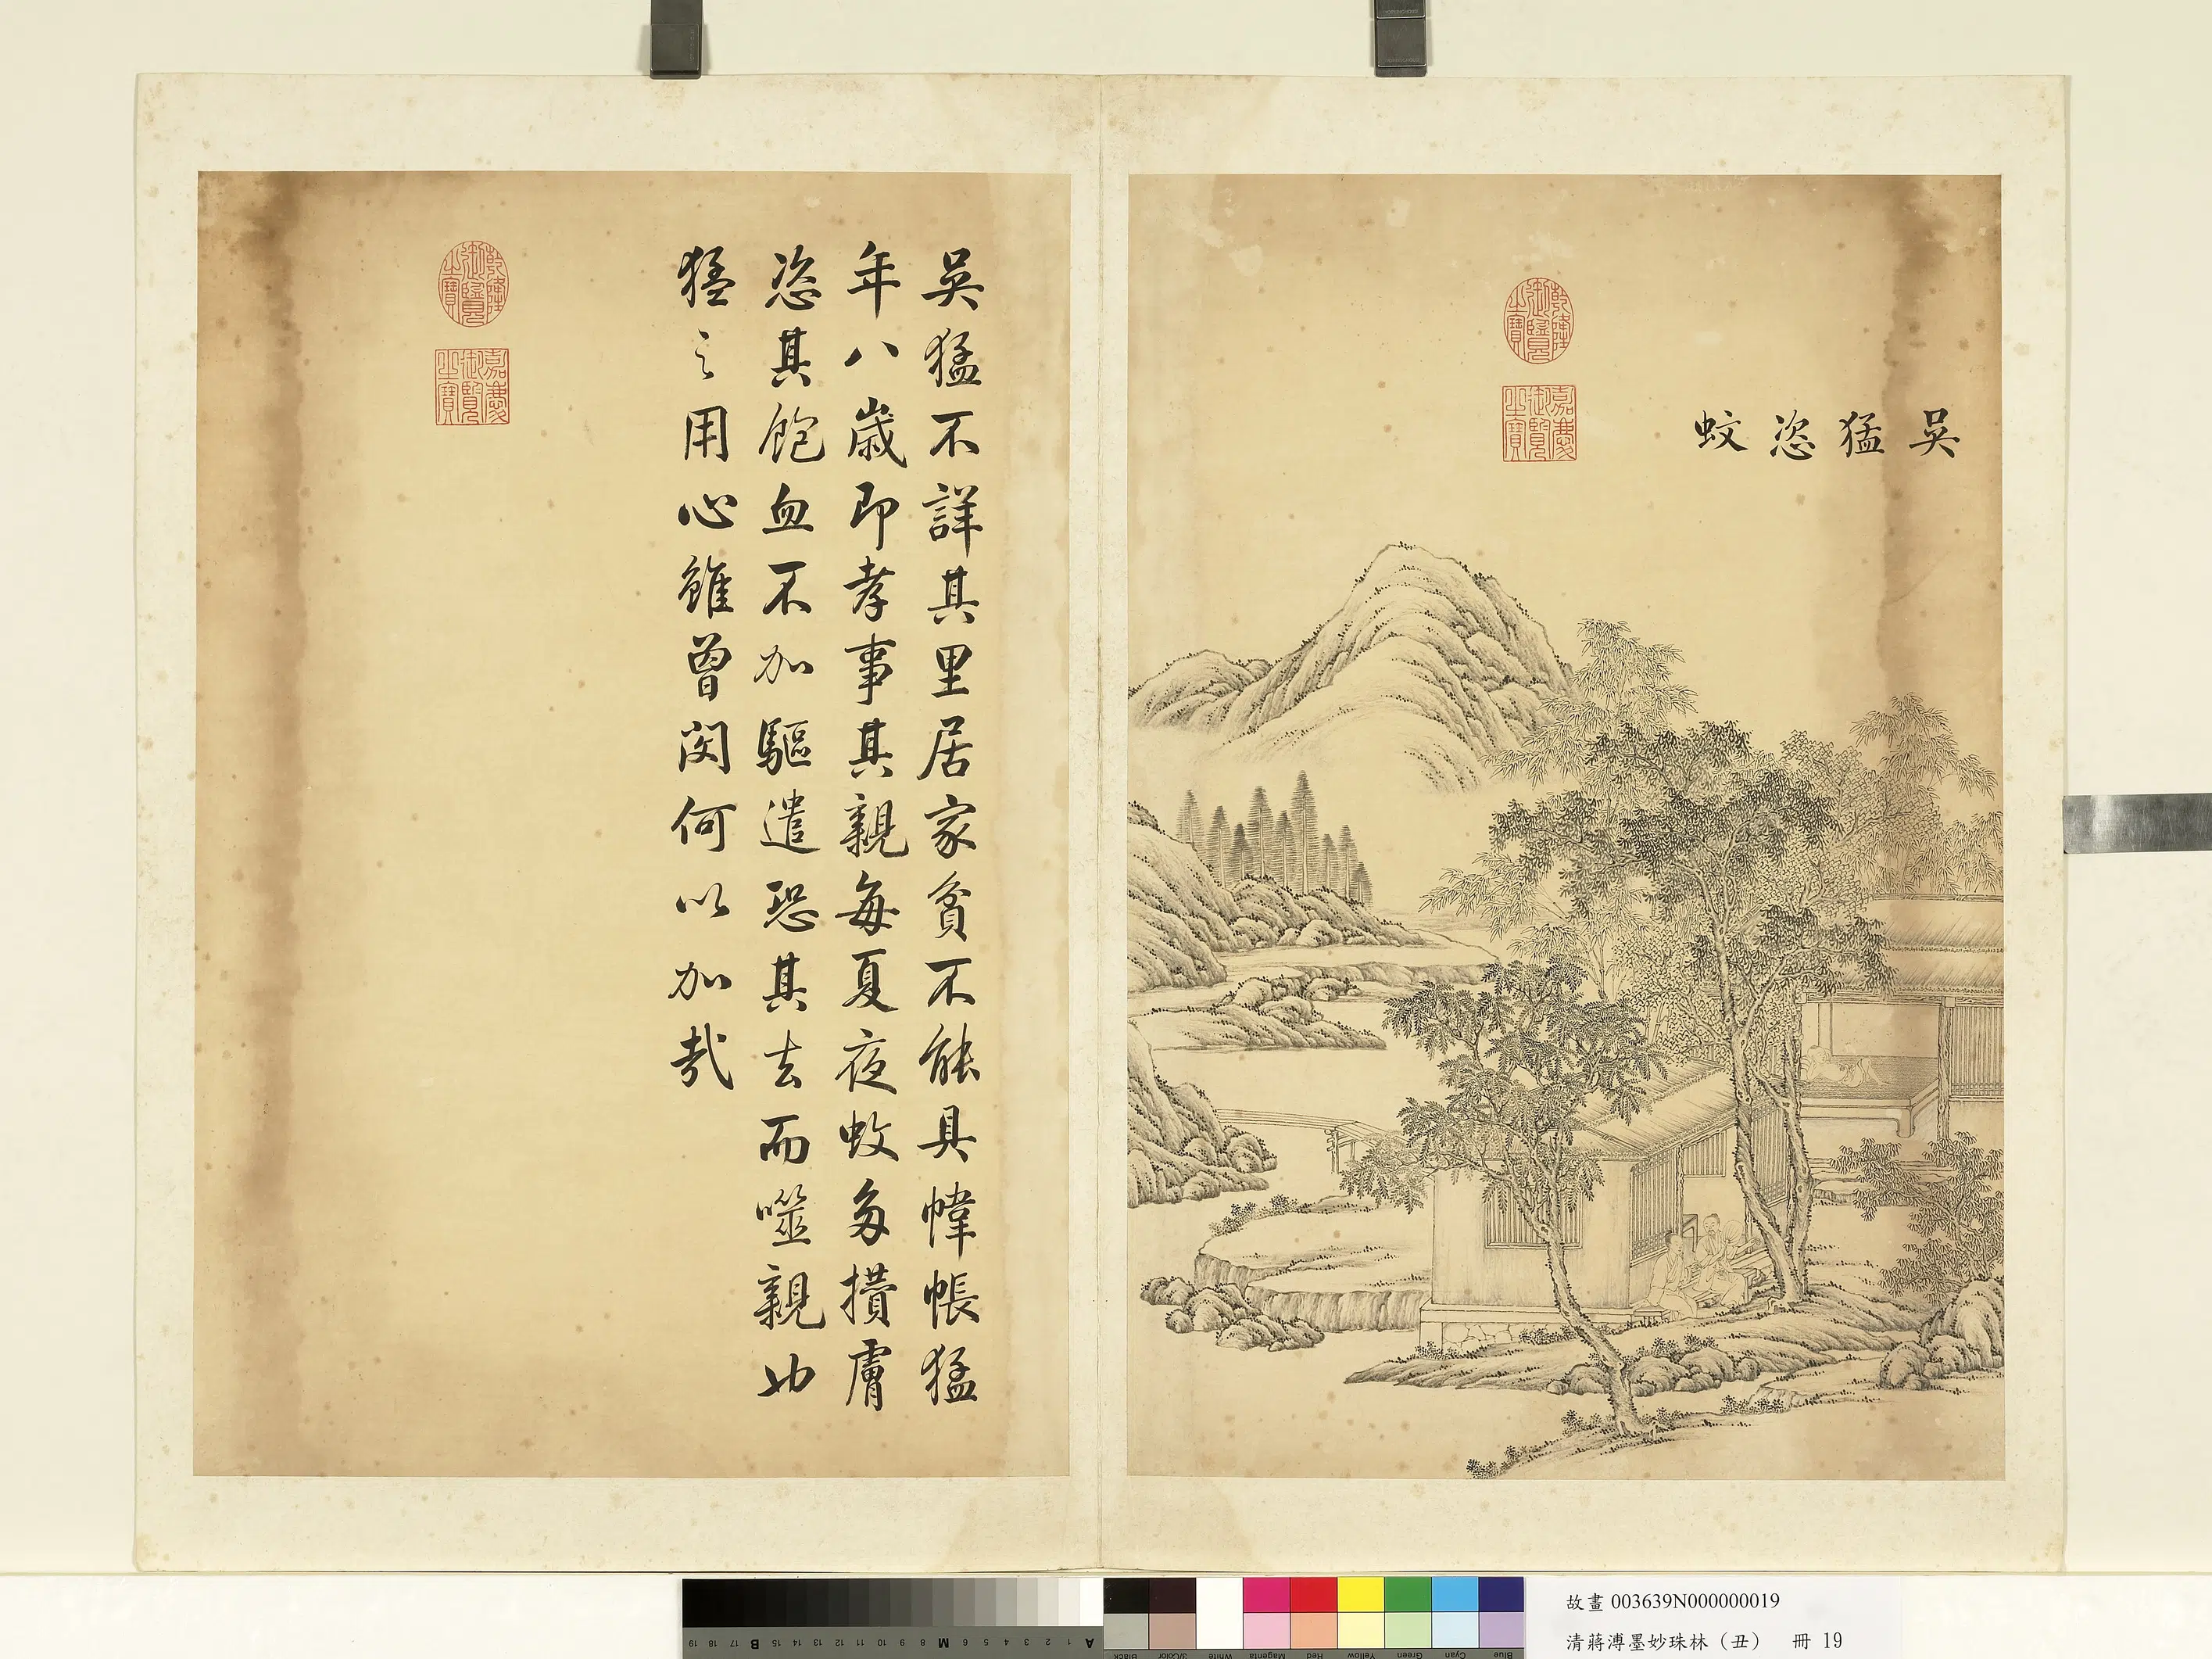 吳猛恣蚊
乾隆御覽之寶
嘉慶御覽之寶
吳猛不詳其里居家貧不能具幃帳猛
年八歲即孝事其親每夏夜蚊多攢膚
恣其飽血不加驅遣恐其去而噬親也
猛之用心雖曾閔何以加哉
乾隆御覽之寶
嘉慶御覽之寶
故畫 003639N000000019
清蔣溥墨妙珠林（丑） 冊 19
19 18 17 B 15 14 13 12 11 10 9 8 M 6 5 4 3 2 1 A
Black 3/Color White Magenta Red Yellow Green Cyan Blue